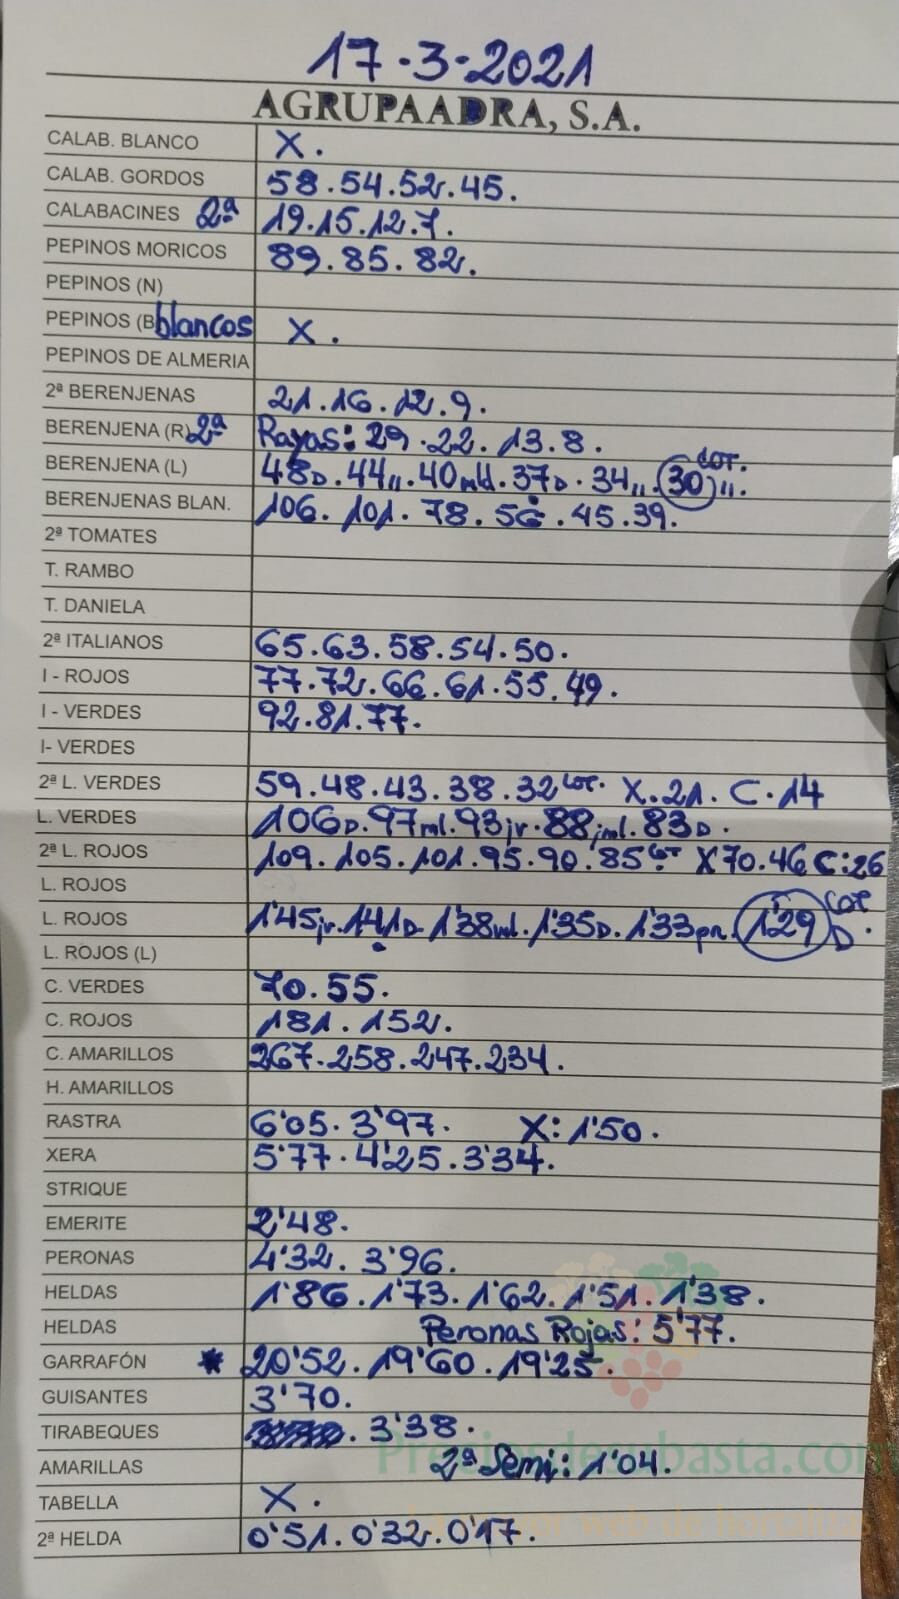 17·3·2021
AGRUPAADRA, S.A.
CALAB. BLANCO X.
CALAB. GORDOS 58.54.52.45.
CALABACINES 2ª 19.15.12.7.
PEPINOS MORICOS 89.85.82.
PEPINOS (N)
PEPINOS (B blancos X.
PEPINOS DE ALMERIA
2ª BERENJENAS 21.16.12.9.
BERENJENA (R) 2ª Rayas: 29.22.13.8.
BERENJENA (L) 48D.44,,.40mld.37D.34,,.30,,. COT.
BERENJENAS BLAN. 106.101.78.56.45.39.
2ª TOMATES
T. RAMBO
T. DANIELA
2ª ITALIANOS 65.63.58.54.50.
I - ROJOS 77.72.66.61.55.49.
I - VERDES 92.81.77.
I- VERDES
2ª L. VERDES 59.48.43.38.32 cot. X.21. C.14
L. VERDES 106D.97ml.93jr.88jml.83D.
2ª L. ROJOS 109.105.101.95.90.85 cot X70.46 C:26
L. ROJOS
L. ROJOS 1'45jr.1'41D.1'38ml.1'35D.1'33pr.1'29D. COT
L. ROJOS (L)
C. VERDES 70.55.
C. ROJOS 181.152.
C. AMARILLOS 267.258.247.234.
H. AMARILLOS
RASTRA 6'05.3'97. X:1'50.
XERA 5'77.4'25.3'34.
STRIQUE
EMERITE 2'48.
PERONAS 4'32. 3'96.
HELDAS 1'86.1'73.1'62.1'51.1'38.
HELDAS Peronas Rojas: 5'77.
GARRAFÓN * 20'52.19'60.19'25.
GUISANTES 3'70.
TIRABEQUES . 3'38.
Preciosdesubasta.com
AMARILLAS 2ª Semi: 1'04.
TABELLA X.
web de hortalizas
2ª HELDA 0'51.0'32.0'17.